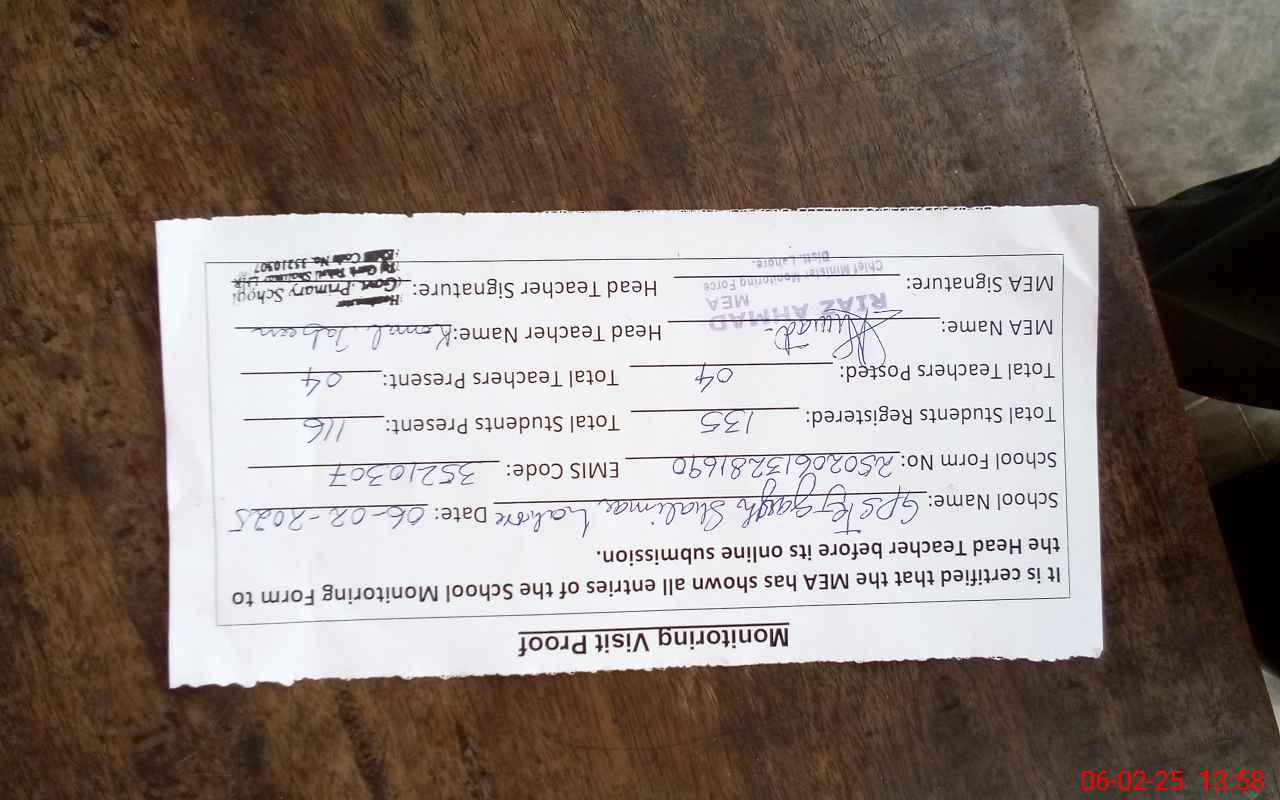 Monitoring Visit Proof
It is certified that the MEA has shown all entries of the School Monitoring Form to
the Head Teacher before its online submission.
School Name: GPS Garh Shalimar Lahore Date: 06-02-2025
School Form No: 25020613281690 EMIS Code: 35210307
Total Students Registered: 135 Total Students Present: 116
Total Teachers Posted: 04 Total Teachers Present: 04
MEA Name: Head Teacher Name: Komal
RIAZ AHMAD
MEA
MEA Signature: Head Teacher Signature:
Chief Minister Monitoring Force
Distt. Lahore.
Govt. Primary School
Code No. 35210307
06-02-25 13:58